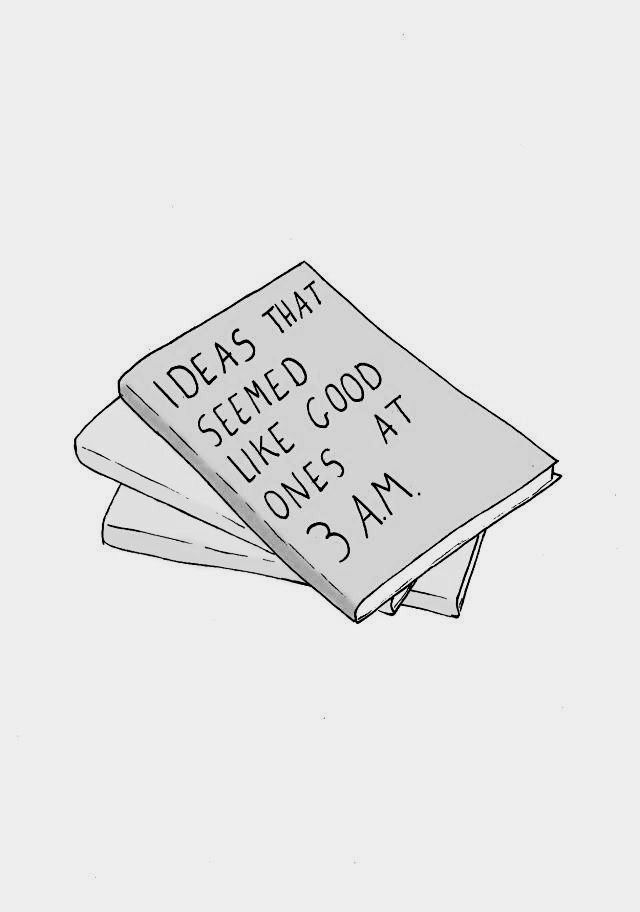 IDEAS THAT
SEEMED
LIKE GOOD
ONES AT
3 A.M.